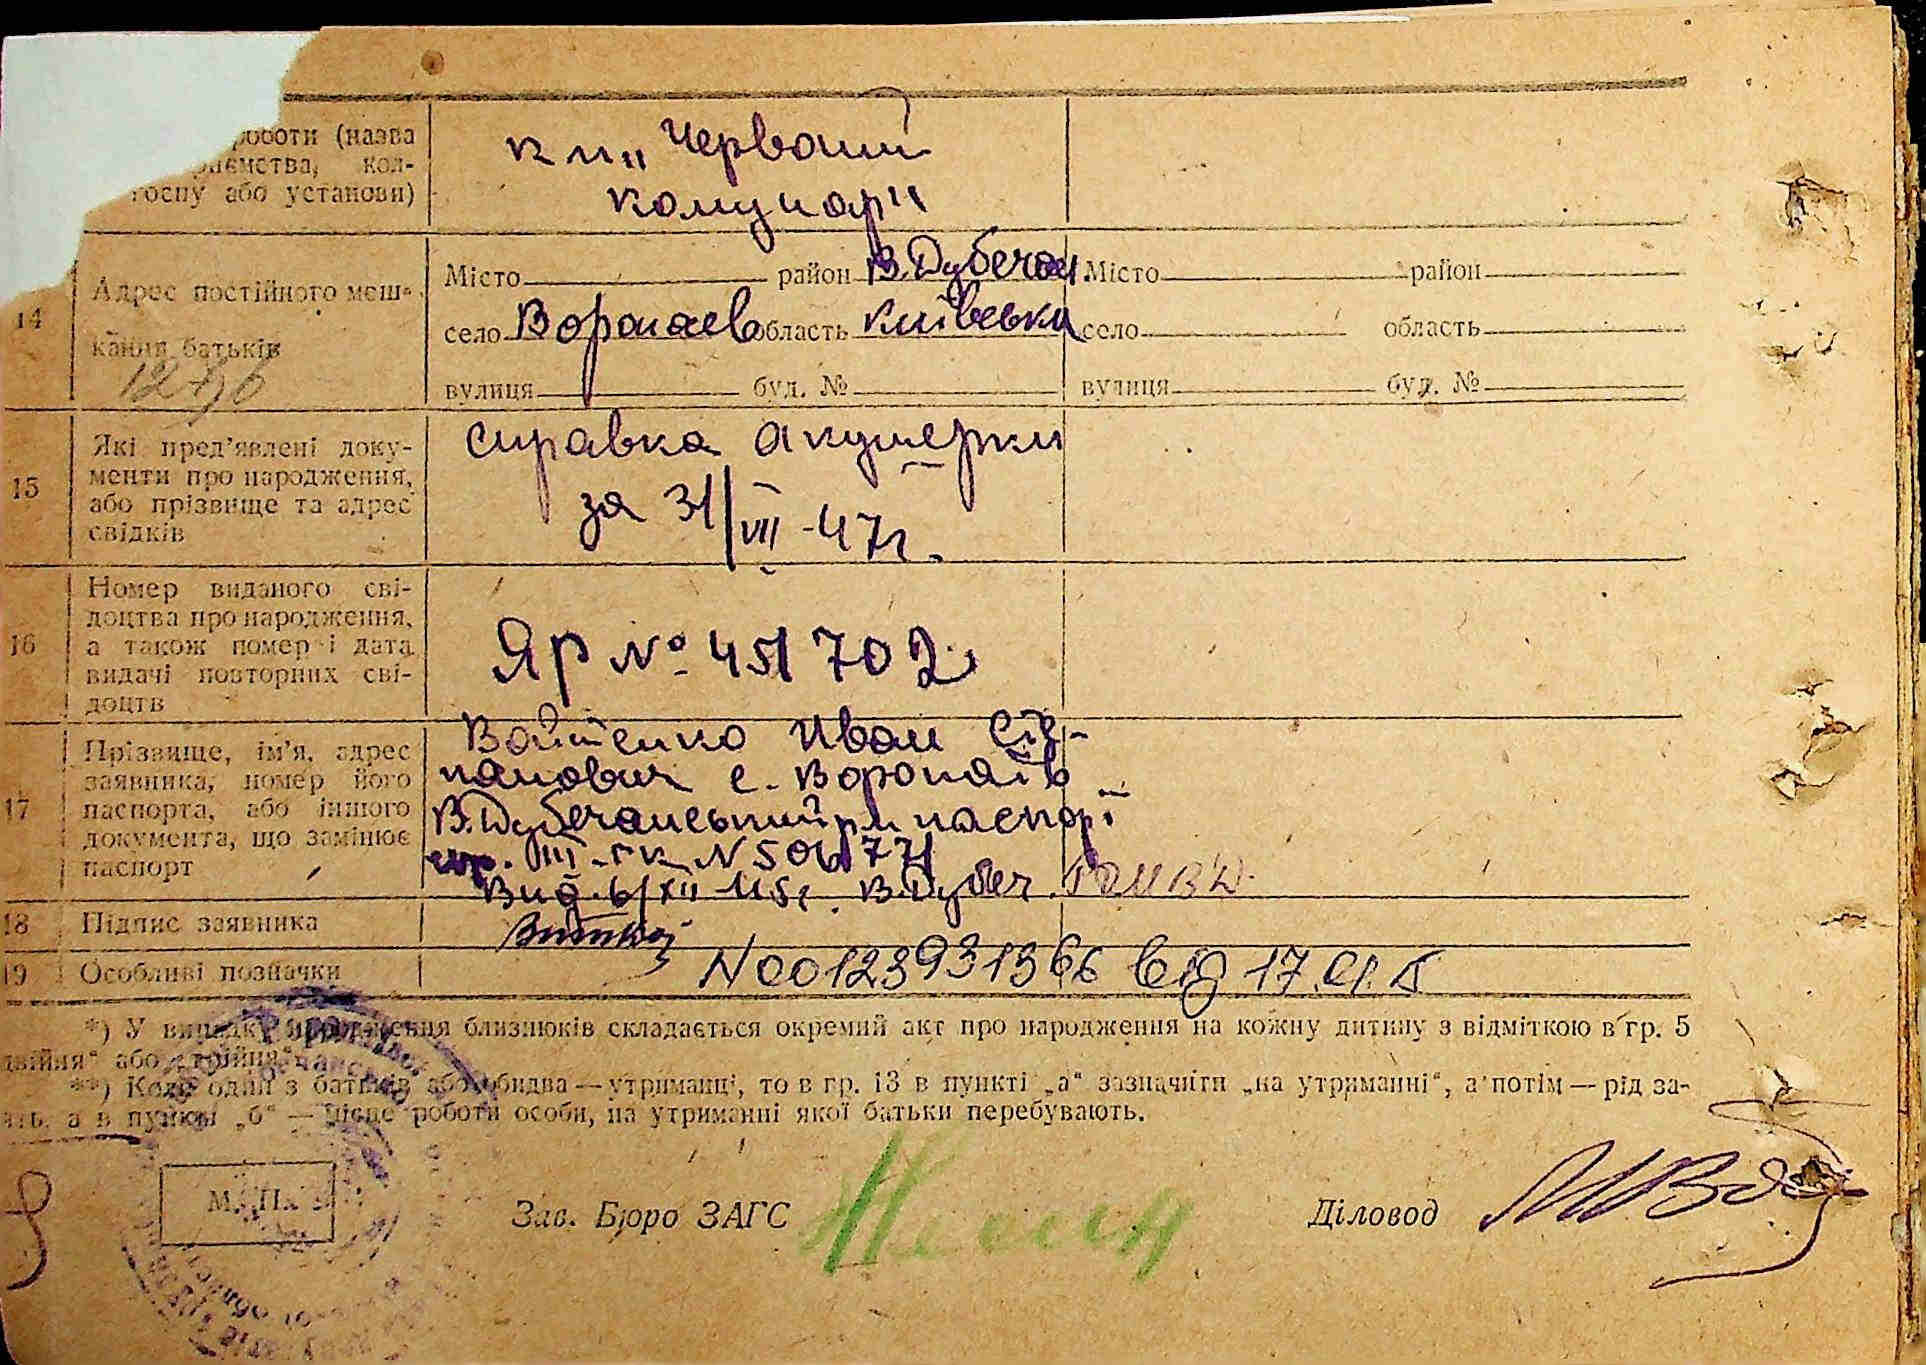 роботи (назва
кол-
госпу або установи)
к-п „Червоний
комунар"
14
Адрес постійного меш-
кання батьків
Місто район В.Дубечан
село Воропаев область Київська
вулиця буд. №
Місто район
село область
вулиця буд. №
15
Які пред'явлені доку-
менти про народження,
або прізвище та адрес
свідків
справка акушерки
за 31/VII-47г.
16
Номер виданого сві-
доцтва про народження,
а також номер і дата
видачі повторних сві-
доцтв
ЯР № 451702
17
Прізвище, ім'я, адрес
заявника, номер його
паспорта, або іншого
документа, що замінює
паспорт
Войтенко Иван Сте-
панович с. Воропаїв
В.Дубечанський р-н паспорт
сер. III-ГК N
Вид. В.Дубеч.
18 Підпис заявника
19 Особливі позначки
N00123931366 від
*) У випадку народження близнюків складається окремий акт про народження на кожну дитину з відміткою в гр. 5
двійня" або „трійня".
**) Коли один з батьків або обидва — утриманці, то в гр. 13 в пункті „а" зазначити „на утриманні", а потім — рід за-
а в пункті „б" — місце роботи особи, на утриманні якої батьки перебувають.
М. П.
Зав. Бюро ЗАГС
Діловод